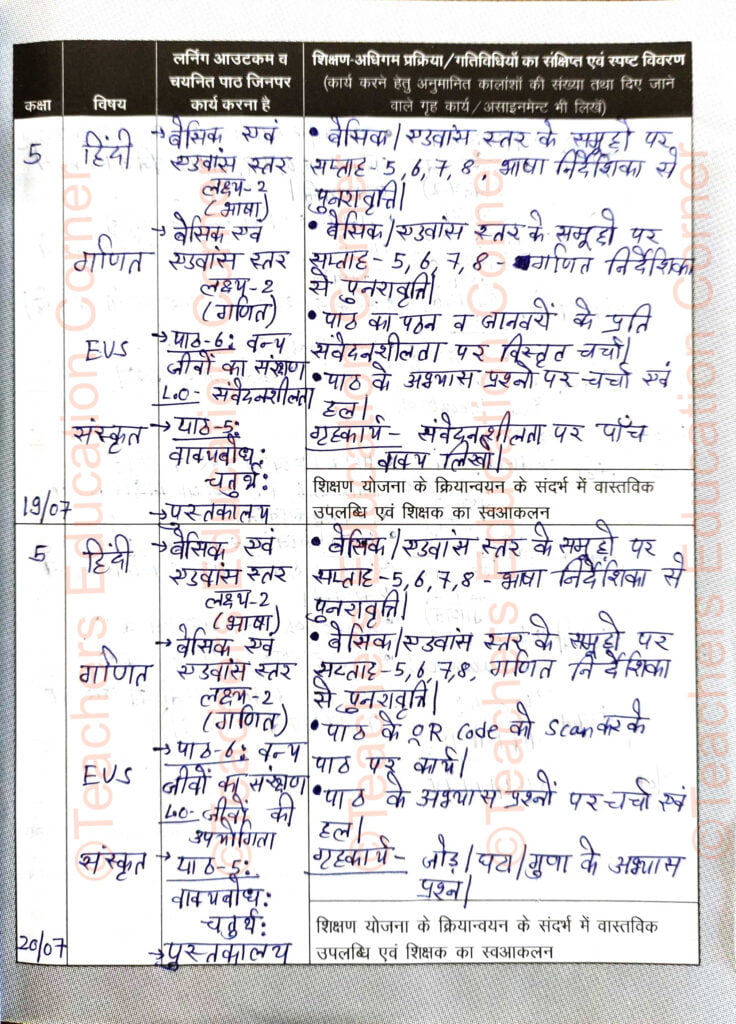 कक्षा
विषय
लर्निंग आउटकम व
चयनित पाठ जिनपर
कार्य करना है
शिक्षण-अधिगम प्रक्रिया/गतिविधियों का संक्षिप्त एवं स्पष्ट विवरण
(कार्य करने हेतु अनुमानित कालांशों की संख्या तथा दिए जाने
वाले गृह कार्य/असाइनमेन्ट भी लिखें)
5
हिंदी
→ बेसिक एवं
एडवांस स्तर
लक्ष्य-2
(भाषा)
• बेसिक/एडवांस स्तर के समूहो पर
सप्ताह-5,6,7,8, भाषा निर्देशिका से
पुनरावृत्ति।
गणित
→ बेसिक एवं
एडवांस स्तर
लक्ष्य-2
(गणित)
• बेसिक/एडवांस स्तर के समूहो पर
सप्ताह-5,6,7,8- गणित निर्देशिका
से पुनरावृत्ति।
EVS
→ पाठ-6: वन्य
जीवों का संरक्षण
L.O- संवेदनशीलता
• पाठ का पठन व जानवरों के प्रति
संवेदनशीलता पर विस्तृत चर्चा।
• पाठ के अभ्यास प्रश्नो पर चर्चा एवं
हल।
संस्कृत
→ पाठ-5:
वाक्यबोध:
चतुर्थ:
→ पुस्तकालय
गृहकार्य- संवेदनशीलता पर पाँच
वाक्य लिखो।
19/07
शिक्षण योजना के क्रियान्वयन के संदर्भ में वास्तविक
उपलब्धि एवं शिक्षक का स्वआकलन
5
हिंदी
→ बेसिक एवं
एडवांस स्तर
लक्ष्य-2
(भाषा)
• बेसिक/एडवांस स्तर के समूहो पर
सप्ताह-5,6,7,8-भाषा निर्देशिका से
पुनरावृत्ति।
गणित
→ बेसिक एवं
एडवांस स्तर
लक्ष्य-2
(गणित)
• बेसिक/एडवांस स्तर के समूहो पर
सप्ताह-5,6,7,8, गणित निर्देशिका
से पुनरावृत्ति।
EVS
→ पाठ-6: वन्य
जीवों का संरक्षण
L.O- जीवों की
उपयोगिता
• पाठ के QR Code को Scan करके
पाठ पर कार्य।
• पाठ के अभ्यास प्रश्नों पर चर्चा एवं
हल।
संस्कृत
→ पाठ-5:
वाक्यबोध:
चतुर्थ:
→ पुस्तकालय
गृहकार्य- जोड़/घटा/गुणा के अभ्यास
प्रश्न।
20/07
शिक्षण योजना के क्रियान्वयन के संदर्भ में वास्तविक
उपलब्धि एवं शिक्षक का स्वआकलन
©Teachers Education Corner
©Teachers Education Corner
©Teachers Education Corner
©Teachers Education Corner